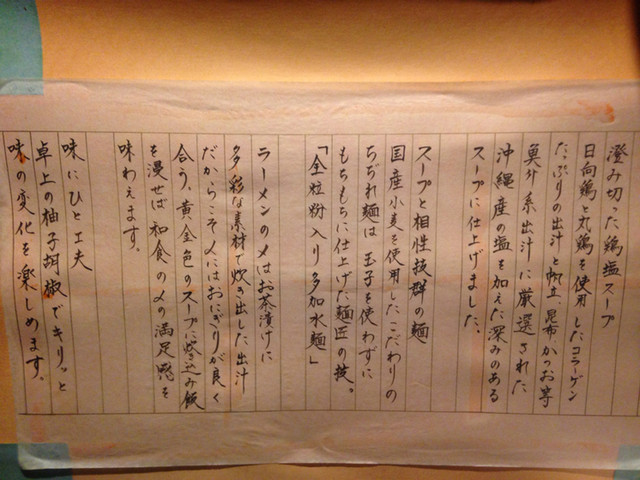 澄み切った鶏塩スープ
日向鶏と丸鶏を使用したコラーゲン
たっぷりの出汁と帆立、昆布かつお等
魚介系出汁に厳選された
沖縄産の塩を加えた深みのある
スープに仕上げました。
スープと相性抜群の麺
国産小麦を使用したこだわりの
ちぢれ麺は玉子を使わずに
もちもちに仕上げた麺匠の技。
「全粒粉入り多加水麺」
ラーメンの〆はお茶漬けに
多彩な素材で炊き出した出汁
だからこそ〆にはおにぎりが良く
合う、黄金色のスープに炊き込み飯
を浸せば和食の〆の満足感を
味わえます。
味にひと工夫
卓上の柚子胡椒でキリッと
味の変化を楽しめます。